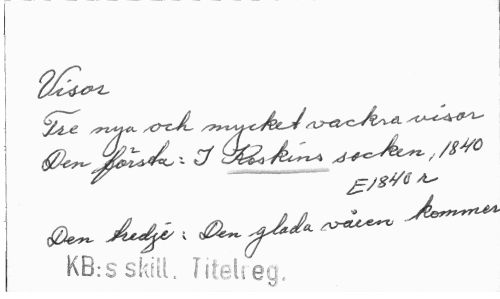 Visor
Tre nya och mycket vackra visor
Den första: I Roskins socken, 1840
E1840r
Den tredje: Den glada våren kommer
KB:s skill. Titelreg.